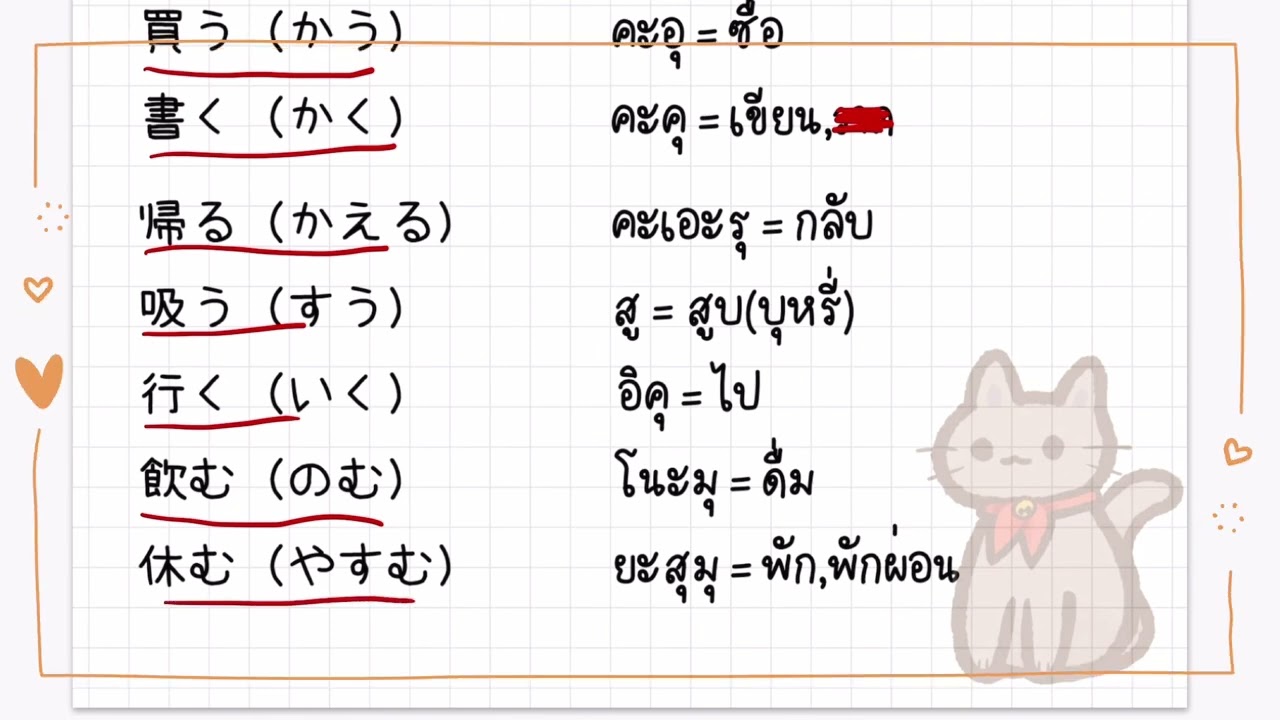 買う (かう) คะอุ = ซื้อ
書く (かく) คะคุ = เขียน,
帰る (かえる) คะเอะรุ = กลับ
吸う (すう) สู = สูบ(บุหรี่)
行く (いく) อิคุ = ไป
飲む (のむ) โนะมุ = ดื่ม
休む (やすむ) ยะสุมุ = พัก,พักผ่อน